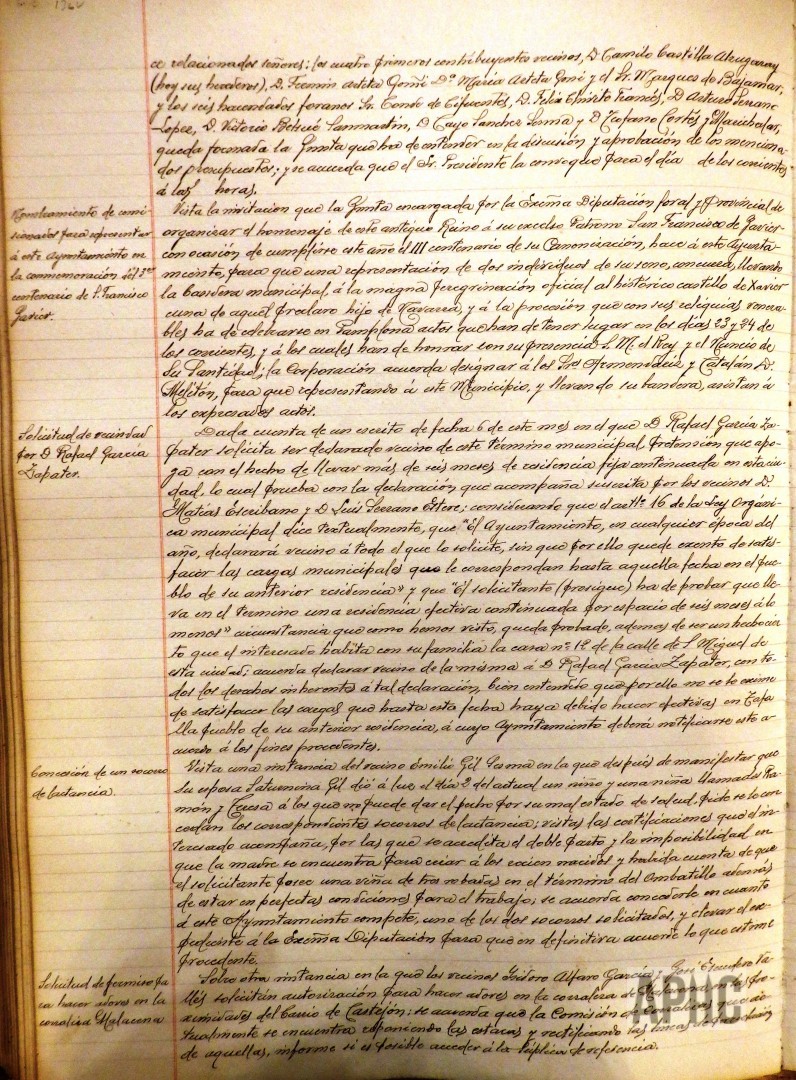 ce relacionados señores: los cuatro primeros contribuyentes vecinos, D. Camilo Castilla Atzugaray
(hoy sus herederos), D. Fermín Arteta Goñi Dª María Arteta Goñi y el Sr. Marques de Bajamar;
y los seis hacendados foranos Sr. Conde de Cifuentes, D. Felix Francés, D Arturo Serrano
Lopez, D. Victorio Sanmartín, D. Cayo Sanchez y D. Cortés y Marichalar,
queda formada la Junta que ha de entender en la discusión y aprobación de los menciona-
dos presupuestos; y se acuerda que el Sr. Presidente la convoque para el día de los corrientes
á las horas.
Nombramiento de comi
sionados para representar
á este Ayuntamiento en
la conmemoración del 3er
centenario de S. Francisco
Javier.
Vista la invitacion que la Junta encargada por la Excma Diputación foral y provincial de
organizar el homenaje de este antiguo Reino á su excelso Patrono San Francisco de Javier
con ocasión de cumplirse este año el III centenario de su Canonización, hace á este Ayunta-
miento, para que una representación de dos individuos de su seno, concurra, llevando
la bandera municipal, á la magna peregrinación oficial al histórico castillo de Xavier
cuna de aquel preclaro hijo de Navarra, y á la procesión que con sus reliquias venera-
bles ha de celebrarse en Pamplona actos que han de tener lugar en los días 23 y 24 de
los corrientes, y á los cuales han de honrar con su presencia S. M. el Rey y el Nuncio de
Su Santidad; la Corporación acuerda designar á los Sres Armendáriz y Catalán D.
Melitón, para que representando á este Municipio, y llevando su bandera, asistan á
los expresados actos.
Solicitud de vecindad
por D Rafael Garcia
Zapater.
Dada cuenta de un escrito de fecha 6 de este mes en el que D. Rafael García Za-
pater solicita ser declarado vecino de este término municipal, pretensión que apo-
ya con el hecho de llevar más de seis meses de residencia fija continuada en esta ciu-
dad, lo cual prueba con la declaración que acompaña suscrita por los vecinos D.
Matías Escribano y D Luis Serrano Esteve; considerando que el artº 16 de la Ley Orgáni-
ca municipal dice textualmente, que "El Ayuntamiento, en cualquier época del
año, declarará vecino á todo el que lo solicite, sin que por ello quede exento de satis-
facer las cargas municipales que le correspondan hasta aquella fecha en el pue-
blo de su anterior residencia» y que "El solicitante (prosigue) ha de probar que lle-
va en el termino una residencia efectiva continuada por espacio de seis meses á lo
menos» circunstancia que como hemos visto, queda probado, ademas de ser un hecho cier
to que el interesado habita con su familia la casa nº de la calle de S. Miguel de
esta ciudad; acuerda declarar vecino de la misma á D. Rafael Garcia Zapater, con to-
dos los derechos inherentes á tal declaración, bien entendido que por ello no se le exime
de satisfacer las cargas que hasta esta fecha haya debido hacer efectivas en Tafa
lla pueblo de su anterior residencia, á cuyo Ayuntamiento deberá notificarse este a-
cuerdo á los fines procedentes.
Concesión de un socorro
de lactancia.
Vista una instancia del vecino Emilio Gil Sesma en la que después de manifestar que
su esposa Saturnina Gil dió á luz el día 2 del actual un niño y una niña llamados Ra-
món y Teresa á los que no puede dar el pecho por su mal estado de salud, pide se le con-
cedan los correspondientes socorros de lactancia; vistas las certificaciones que el in-
teresado acompaña, por las que se acredita el doble parto y la imposibilidad en
que la madre se encuentra para criar á los recien nacidos y habida cuenta de que
el solicitante posee una viña de tres robadas en el término del Ombatillo además
de estar en perfectas condiciones para el trabajo; se acuerda concederle en cuanto
á este Ayuntamiento compete, uno de los dos socorros solicitados, y elevar el ex-
pediente á la Excma Diputación para que en definitiva acuerde lo que estime
procedente.
Solicitud de permiso pa
ra hacer adores en la
corraliza Malacena
Sobre otra instancia en la que los vecinos Isidoro Alfaro García y José Escudero
solicitan autorización para hacer adores en la corraliza de
ximidades del barrio de Castejón; se acuerda que la Comisión de que ac-
tualmente se encuentra reponiendo las estacas y rectificando las lineas
de aquellas, informe si es posible acceder á la súplica de referencia.
APHC